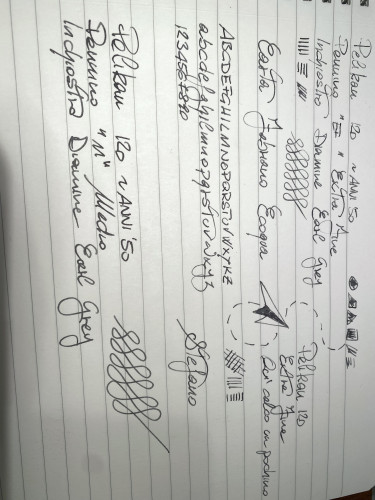 Pelikan 120 ~ ANNI '50
Pennino "EF" Extra Fine
Inchiostro Diamine Earl Grey
Carta Fabriano Ecoqua
ABCDEFGHILMNOPQRSTUVWXYKZ
abcdefghilmnopqrstuvwxyz
1234567890
Stefano
Pelikan 120
Extra Fine
Qui calco un pochino
Pelikan 120 ~ ANNI '50
Pennino "M" Medio
Inchiostro Diamine Earl Grey